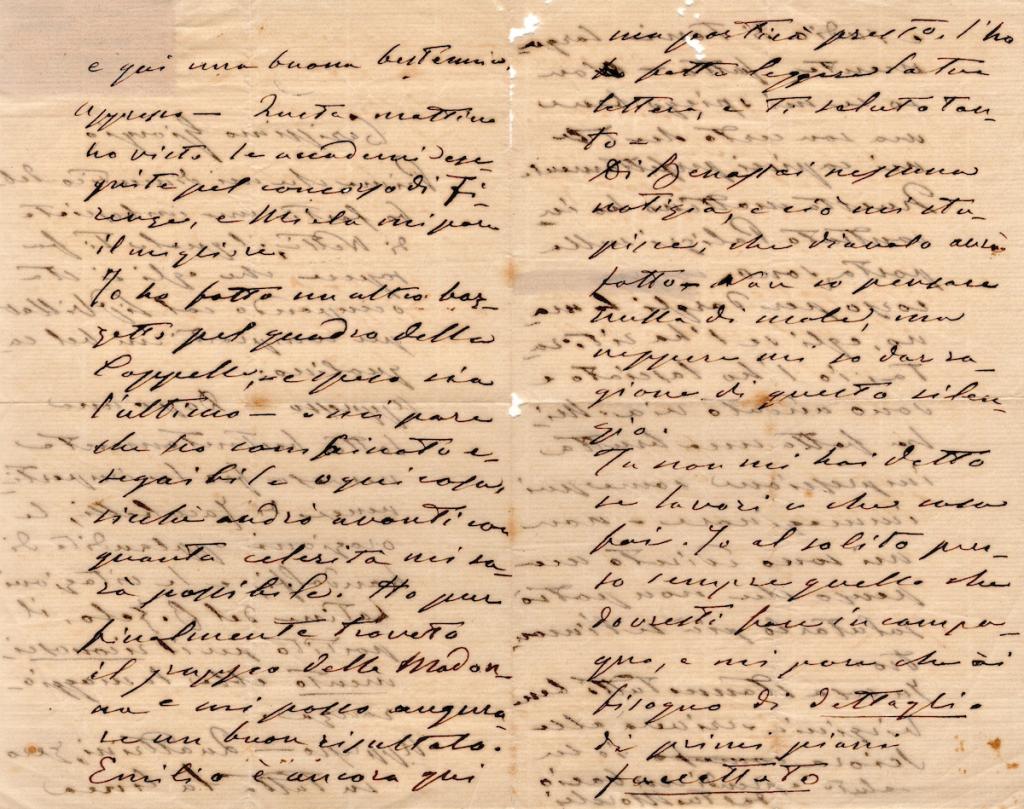 e qui una buona bestemmia.
Appresso — Questa mattina
ho visto le accademie ese-
guite pel concorso di Fi-
renze, e Miola mi pare
il migliore.
Io ho fatto un altro boz-
zetto pel quadro della
Cappella, e spero sia
l'ultimo — mi pare
che ho combinato e-
seguibile ogni cosa,
sicché andrò avanti con
quanta celerità mi sa-
rà possibile. Ho pure
finalmente trovato
il gruppo della Madon-
na e mi posso augura-
re un buon risultato.
Emilio è ancora qui
ma partirà presto, l'ho
fatto leggere la tua
lettera, e ti saluta tan-
to —
Di nessuna
notizia, e ciò mi stu-
pisce, che diavolo avrà
fatto — Non so pensare
tratti di male, ma
neppure mi so dar ra-
gione di questo silen-
zio.
Tu non mi hai detto
se lavori o che cosa
fai. Io al solito pen-
so sempre quello che
dovresti fare in campa-
gna, e mi pare che ài
bisogno di dettagli
di primi piani